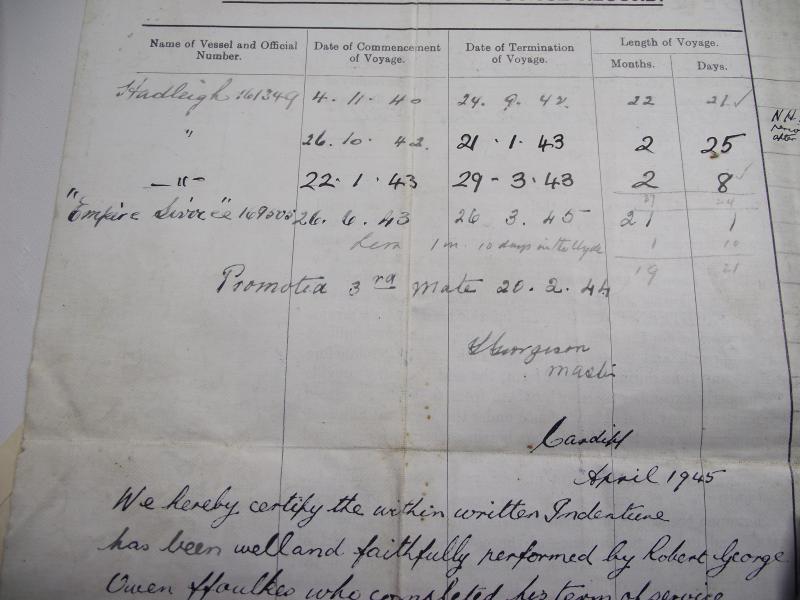 Name of Vessel and Official Number. Date of Commencement of Voyage. Date of Termination of Voyage. Length of Voyage.
Months. Days.
Hadleigh 161349 4. 11. 40 24. 9. 42. 22 21 ✓
" 26. 10. 42. 21. 1. 43 2 25
—"— 22. 1. 43 29 - 3. 43 2 8 ✓
24
"Empire 26. 6. 43 26 3. 45 21 1
Less 1 m. 10 days in the Clyde 1 10
19 21
Promoted 3rd Mate 20. 2. 44
Master
Cardiff
April 1945
We hereby certify the within written Indenture
has been well and faithfully performed by Robert George
Owen ffoulkes who completed his term of service